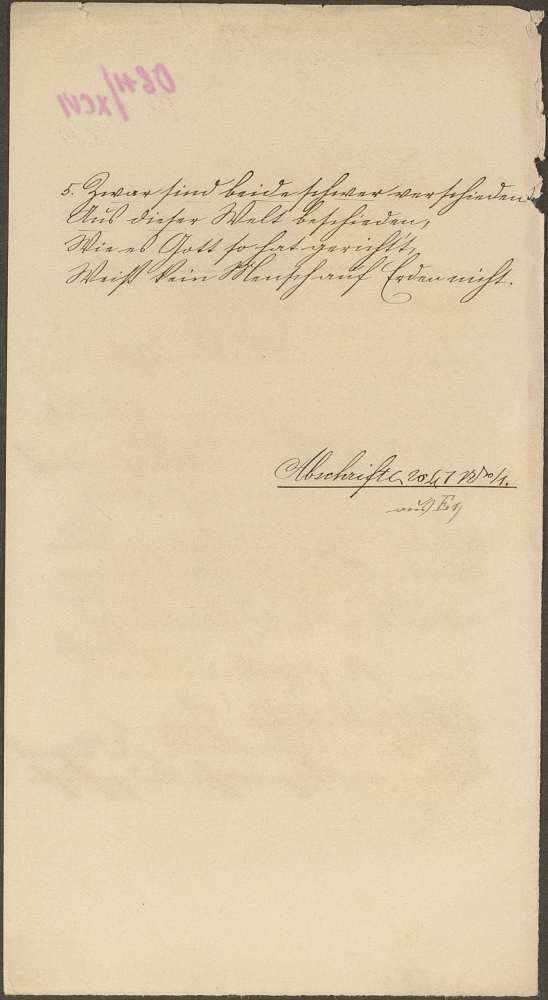 5. Zwar sind beide schwer verschieden
Aus dieser Welt beschieden,
Wie es Gott so hat gericht't,
Weiß kein Mensch auf Erden nicht.
Abschrift
aus E